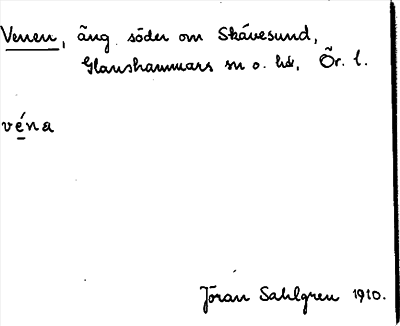 Venen, äng söder om Skävesund,
Glanshammars sn o. hd, Ör. l.
véna
Jöran Sahlgren 1910.